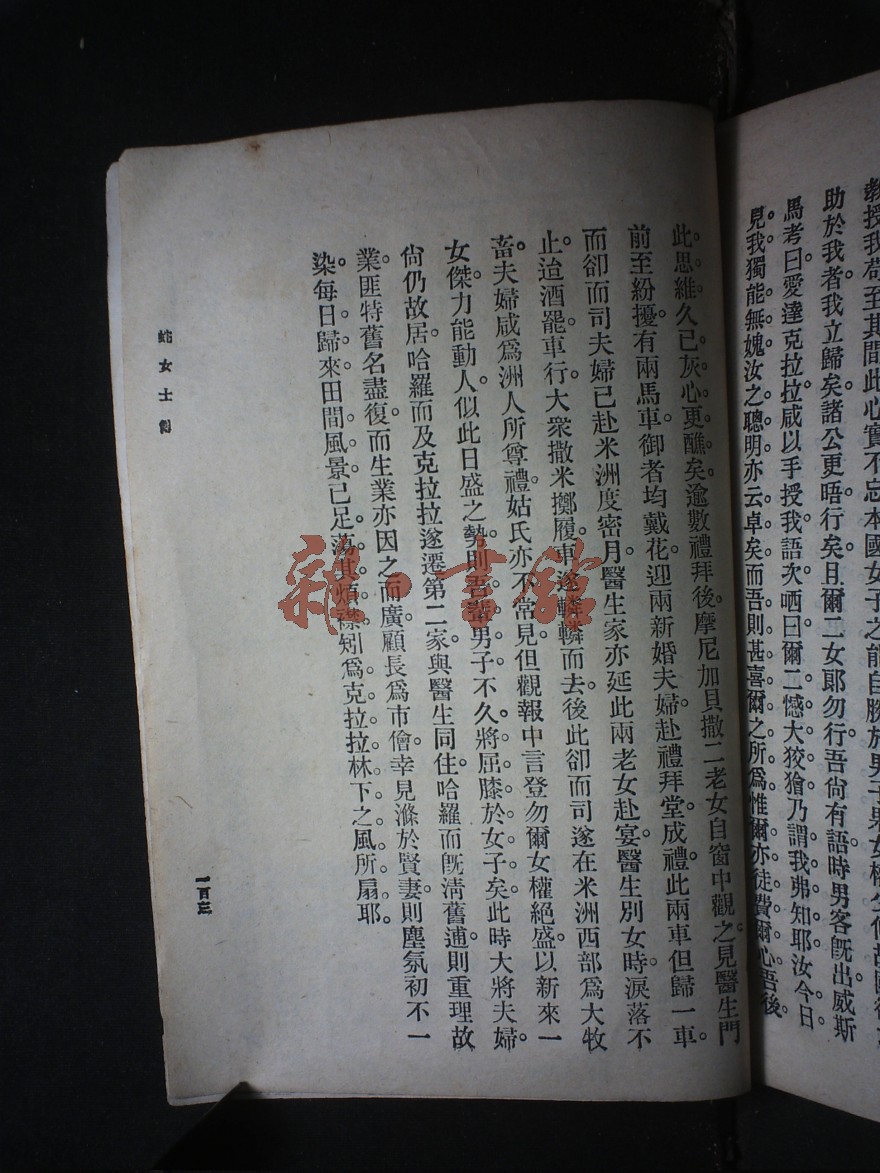 教授我苟至其間此心實不忘本國女子之能自
助於我者我立歸矣諸公更唔行矣且爾二女郎勿行吾尙有語時男客旣出威斯
馬考曰愛達克拉拉咸以手授我語次哂曰爾二憾大狡獪乃謂我弗知耶汝今日。
見我獨能無媿汝之聰明亦云卓矣而吾則甚喜爾之所爲惟爾亦徒費爾心吾後。
此思維久已灰心更醮矣。逾數禮拜後。摩尼加貝撒二老女自窗中觀之見醫生門
前至紛擾有兩馬車。御者均戴花。迎兩新婚夫婦赴禮拜堂成禮此兩車但歸一車。
而卻而司夫婦已赴米洲度密月。醫生家亦延此兩老女赴宴醫生別女時。淚落不
止。迨酒罷車行。大衆撒米擲履。車遂轔轔而去。後此卻而司遂在米洲西部爲大牧
畜。夫婦咸爲洲人所尊禮。姑氏亦不常見。但觀報中言登勿爾女權絕盛。以新來一
女傑。力能動人。似此日盛之勢。則吾輩男子。不久將屈膝於女子矣。此時大將夫婦。
尙仍故居。哈羅而及克拉拉遂遷第二家。與醫生同住。哈羅而旣淸舊逋。則重理故
業。匪特舊名盡復。而生業亦因之而廣。顧長爲市儈。幸見滌於賢妻。則塵氛初不一
染。每日歸來。田間風景。已足蕩其煩襟。矧爲克拉拉林下之風所扇耶。
蛇女士傳
一百三
雜·書館